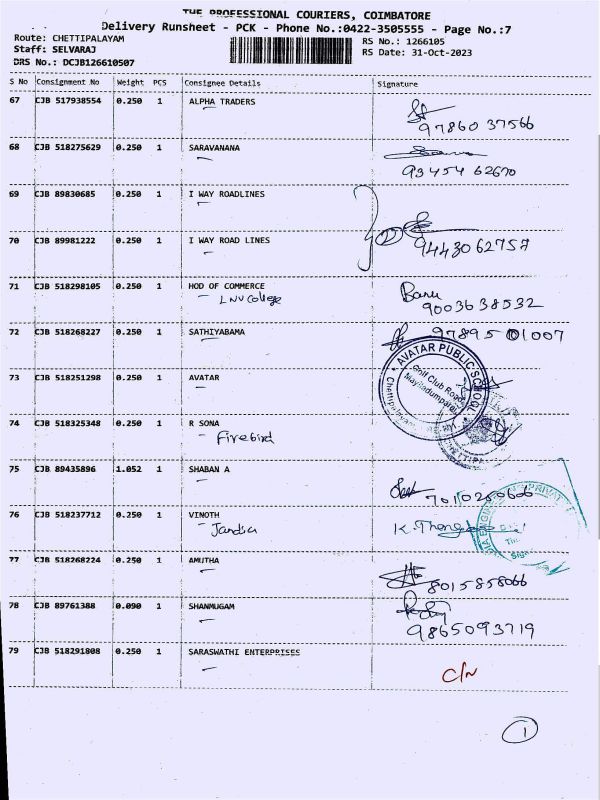 THE PROFESSIONAL COURIERS, COIMBATORE
Delivery Runsheet - PCK - Phone No.:0422-3505555 - Page No.:7
Route: CHETTIPALAYAM RS No.: 1266105
Staff: SELVARAJ RS Date: 31-Oct-2023
DRS No.: DCJB126610507
S No Consignment No Weight PCS Consignee Details Signature
67 CJB 517938554 0.250 1 ALPHA TRADERS
97860 37566
68 CJB 518275629 0.250 1 SARAVANANA
93454 62670
69 CJB 89830685 0.250 1 I WAY ROADLINES
70 CJB 89981222 0.250 1 I WAY ROAD LINES
2 9443062757
71 CJB 518298105 0.250 1 HOD OF COMMERCE Banu
LNV College 9003638532
72 CJB 518268227 0.250 1 SATHIYABAMA 97895 01007
73 CJB 518251298 0.250 1 AVATAR
AVATAR PUBLIC SCHOOL
Golf Club Road
74 CJB 518325348 0.250 1 R SONA
Firebird
75 CJB 89435896 1.052 1 SHABAN A
7010260606
76 CJB 518237712 0.250 1 VINOTH
77 CJB 518268224 0.250 1 AMUTHA
8015858066
78 CJB 89761388 0.090 1 SHANMUGAM
9865093719
79 CJB 518291808 0.250 1 SARASWATHI ENTERPRISES
C/N
1